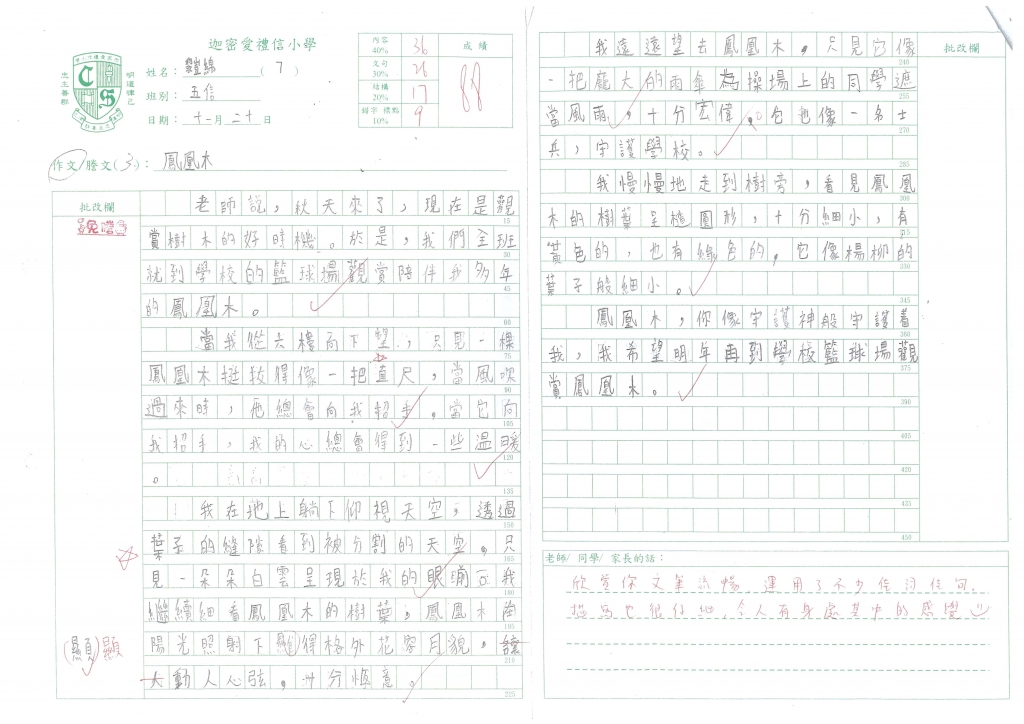 迦密愛禮信小學
明道律己
忠主善群
姓名：豐綿（7）
班別：五信
日期：十一月二十日
內容 40% 36
文句 30% 26
結構 20% 17
錯字 標點 10% 9
成績
88
作文/謄文(3.)：鳳凰木
批改欄
老師說，秋天來了，現在是觀
15
賞樹木的好時機。於是，我們全班
30
就到學校的籃球場觀賞陪伴我多年
45
的鳳凰木。
60
當我從六樓向下望，只見一棵
75
鳳凰木挺拔得像一把直尺，當風吹
90
過來時，它總會向我招手。當它向
105
我招手，我的心總會得到一些溫暖
120
。
135
我在地上躺下仰視天空，透過
150
葉子的縫隙看到被分割的天空。只
165
見一朵朵白雲呈現於我的眼前。我
180
繼續細看鳳凰木的樹葉，鳳凰木在
195
陽光照射下顯得格外花容月貌，
210
動人心弦，十分愜意。
225
顯
批改欄
我遠遠望去鳳凰木，只見它像
240
一把龐大的雨傘為操場上的同學遮
255
當風雨，十分宏偉。它也像一名士
270
兵，守護學校。
285
我慢慢地走到樹旁，看見鳳凰
300
木的樹葉呈橢圓形，十分細小，有
315
黃色的，也有綠色的。它像楊柳的
330
葉子般細小。
345
鳳凰木，你像守護神般守護着
360
我，我希望明年再到學校籃球場觀
375
賞鳳凰木。
390
405
420
435
450
老師/ 同學/ 家長的話：
欣賞你文筆流暢，運用了不少佳詞佳句，
描寫也很仔細，令人有身處其中的感覺